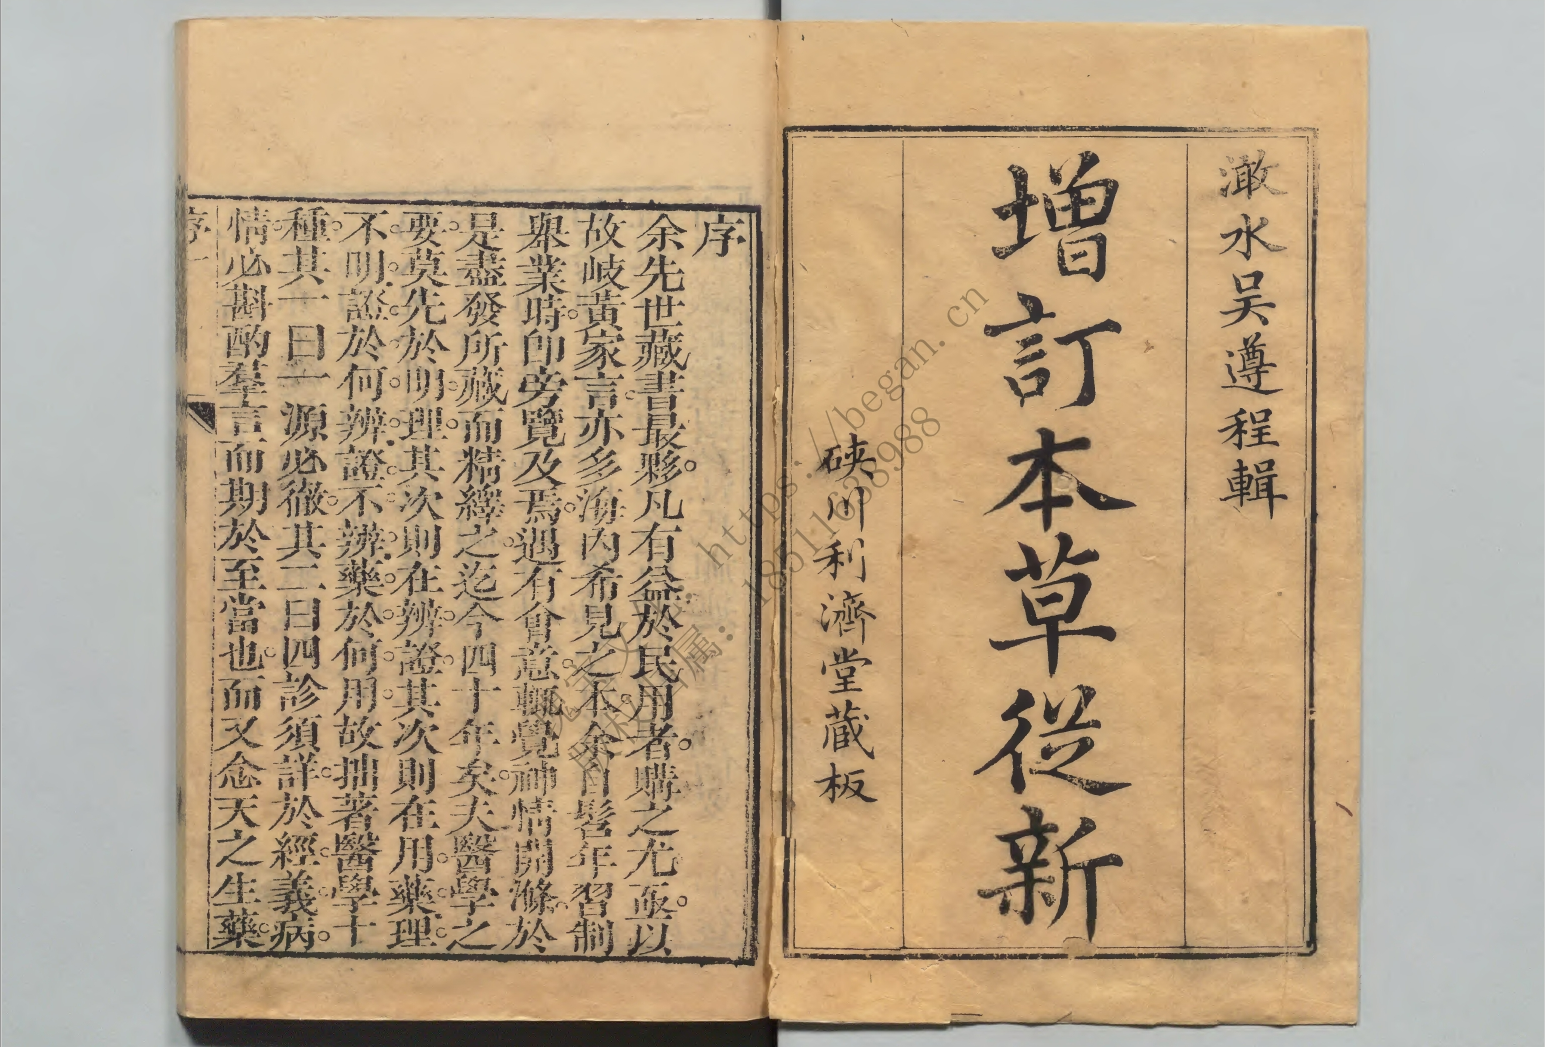 澉水吴遵程輯
增訂本草從新
硤川利濟堂蔵板
序
余先世藏書最夥凡有益於民用者購之尤亟以
故岐黃家言亦多海内希見之本余自髫年習制
舉業時即旁覽及焉遇有會意輒覺神情開滌於
是盡發所藏而精繹之迄今四十年矣夫醫學之
要莫先於明理其次則在辨證其次則在用藥理
不明證於何辨證不辨藥於何用故拙著醫學十
種其一曰一源必徹其二曰四診須詳於經義病
情必斟酌羣言而期於至當也而又念天之生藥
序一
https://began.cn
18511638988